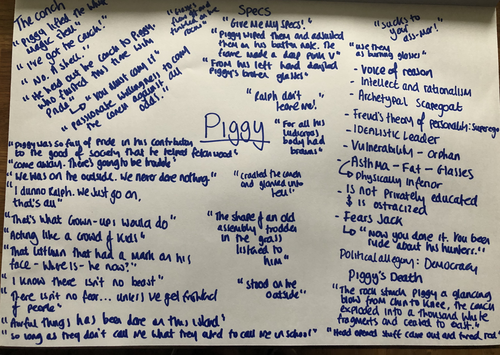 The conch
"Piggy lifted the white
magic shell"
"I've got the conch!"
"No. A shell."
"He held out the conch to Piggy
who flushed this time with
Pride"
"You must carry it"
"passionate willingness to carry
the conch against all
odds."
Specs
"Give Me My Specs!"
"Piggy wiped them and adjusted
them on his button nose. The
frame made a deep pink V"
"From his left hand dangled
Piggy's broken glasses"
"Sucks to
your ass-mar!"
"Use them
as burning glasses"
"Ralph don't
leave me!"
Piggy
"For all his
ludicrous
body had
brains"
- Voice of reason
- Intellect and rationalism
- Archetypal scapegoat
- Freud's theory of personality: superego
- Idealistic Leader
- Vulnerability - Orphan
- Asthma - Fat - Glasses
↳ physically inferior
- Is not privately educated
& is ostracized
- Fears Jack
↳ "Now you done it. You been
rude about his hunters."
Political allegory: Democracy
"Piggy was so full of pride in his contribution
to the good of society that he helped fetch wood"
"Come away. There's going to be trouble"
"We was on the outside. We never done nothing"
"I dunno Ralph. We just go on,
that's all"
"That's what Grown-ups would do"
"Acting like a crowd of kids"
"That littlun that had a mark on his
face - where is - he now?"
"I know there isn't no beast"
"There isn't no fear... unless we get frightened
of people"
"Awful things has been done on this island"
"So long as they don't call me what they used to call me in school"
"cradled the conch
and glowered into
"The shape of an old
assembly trodden
in the grass
listened to
him"
"Stood on the
outside"
Piggy's Death
"The rock struck Piggy a glancing
blow from chin to knee, the conch
exploded into a thousand white
fragments and ceased to exist."
"Head opened stuff came out and turned red"